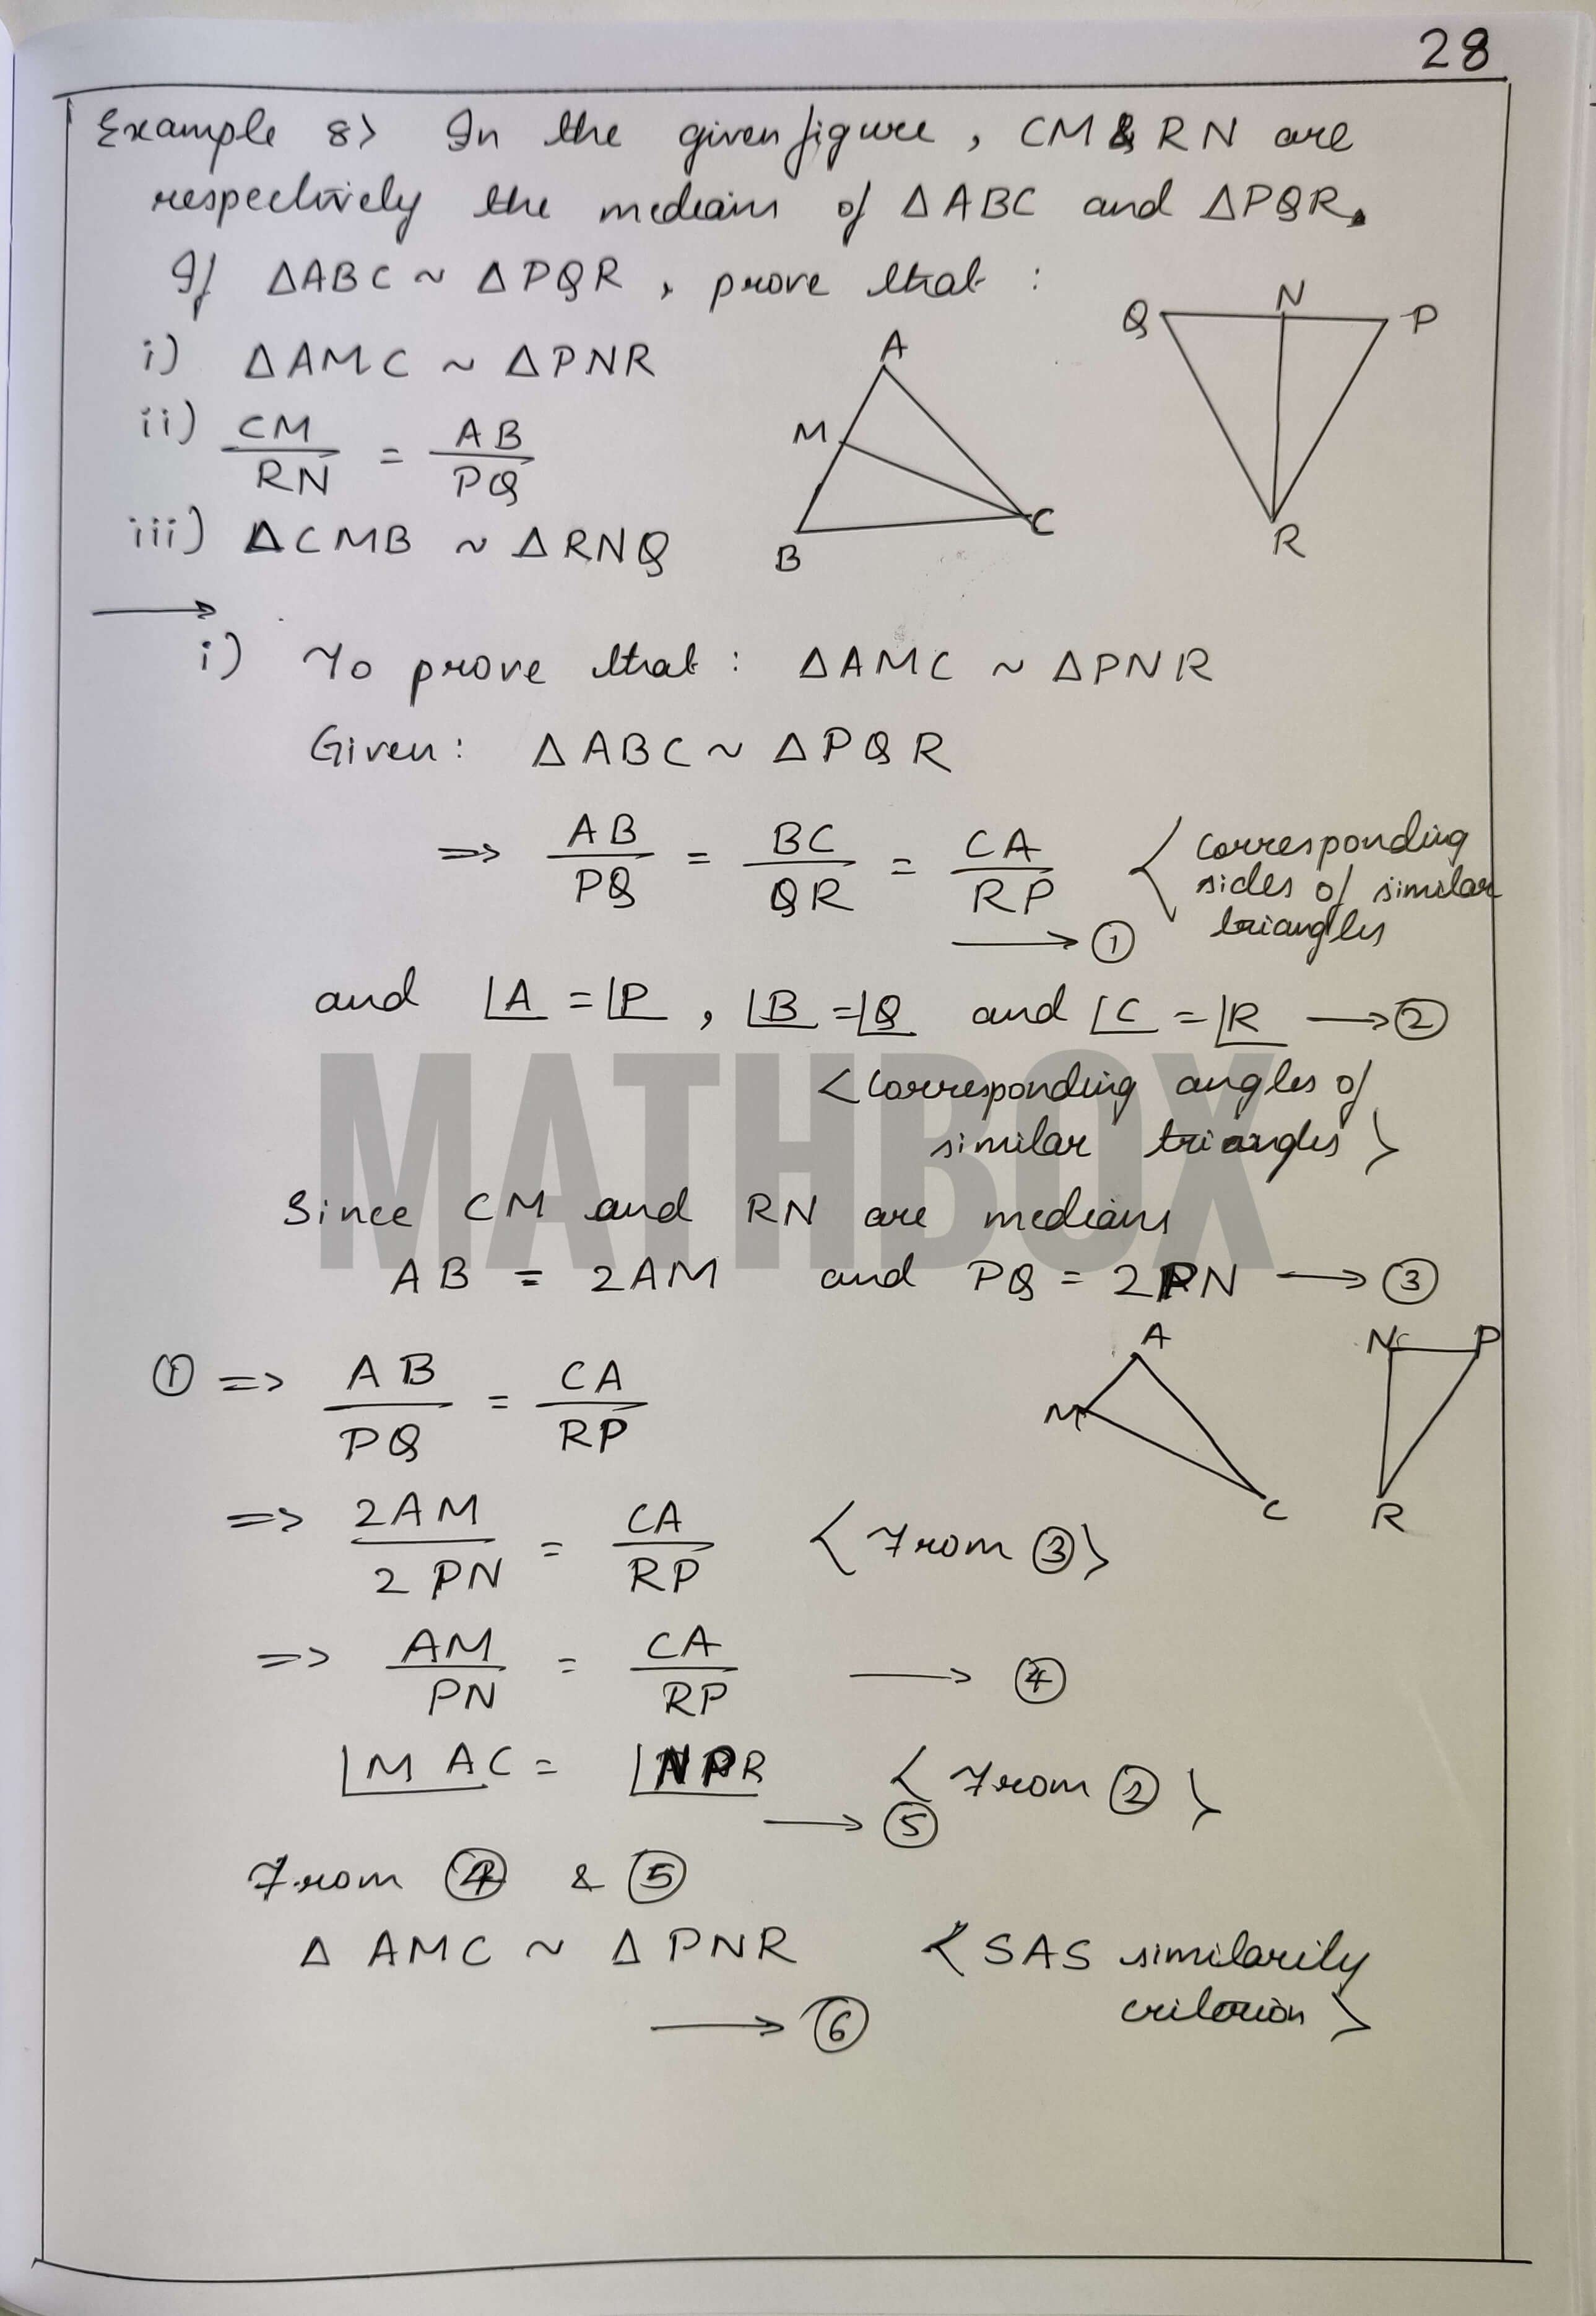 28
Example 8> In the given figure, CM & RN are
respectively the medians of ΔABC and ΔPQR.
If ΔABC ~ ΔPQR, prove that :
i) ΔAMC ~ ΔPNR
ii) CM/RN = AB/PQ
iii) ΔCMB ~ ΔRNQ
A
M
B
C
Q
N
P
R
i) To prove that : ΔAMC ~ ΔPNR
Given : ΔABC ~ ΔPQR
=> AB/PQ = BC/QR = CA/RP → ①
< corresponding
sides of similar
triangles
and ∠A = ∠P, ∠B = ∠Q and ∠C = ∠R → ②
< corresponding angles of
similar triangles >
MATHBOX
Since CM and RN are medians
AB = 2AM and PQ = 2PN → ③
① => AB/PQ = CA/RP
A
M
C
N
P
R
=> 2AM/2PN = CA/RP < From ③ >
=> AM/PN = CA/RP → ④
∠MAC = ∠NPR < From ② >
→ ⑤
From ④ & ⑤
Δ AMC ~ Δ PNR < SAS similarity
criterion >
→ ⑥